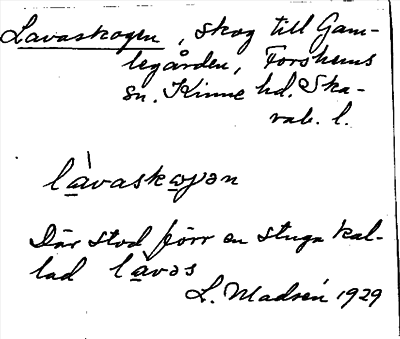 Lavaskogen, skog till Gam-
legården, Forshems
sn. Kinne hd. Ska-
rab. l.
làvaskoγən
Där stod förr en stuga kal-
lad làvəs
L. Madsén 1929